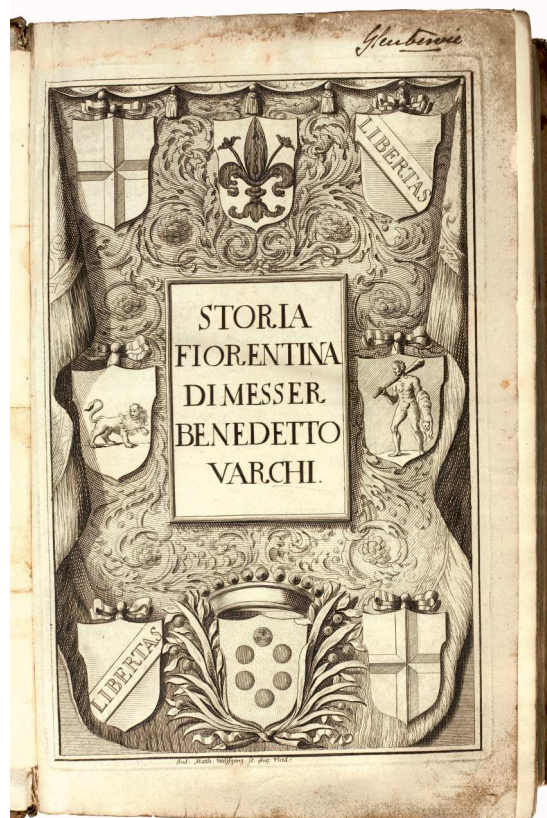 Glenbervie
LIBERTAS
STORIA
FIORENTINA
DI MESSER
BENEDETTO
VARCHI.
LIBERTAS
And: Matth: Wolffgang. sc. Aug. Vind: